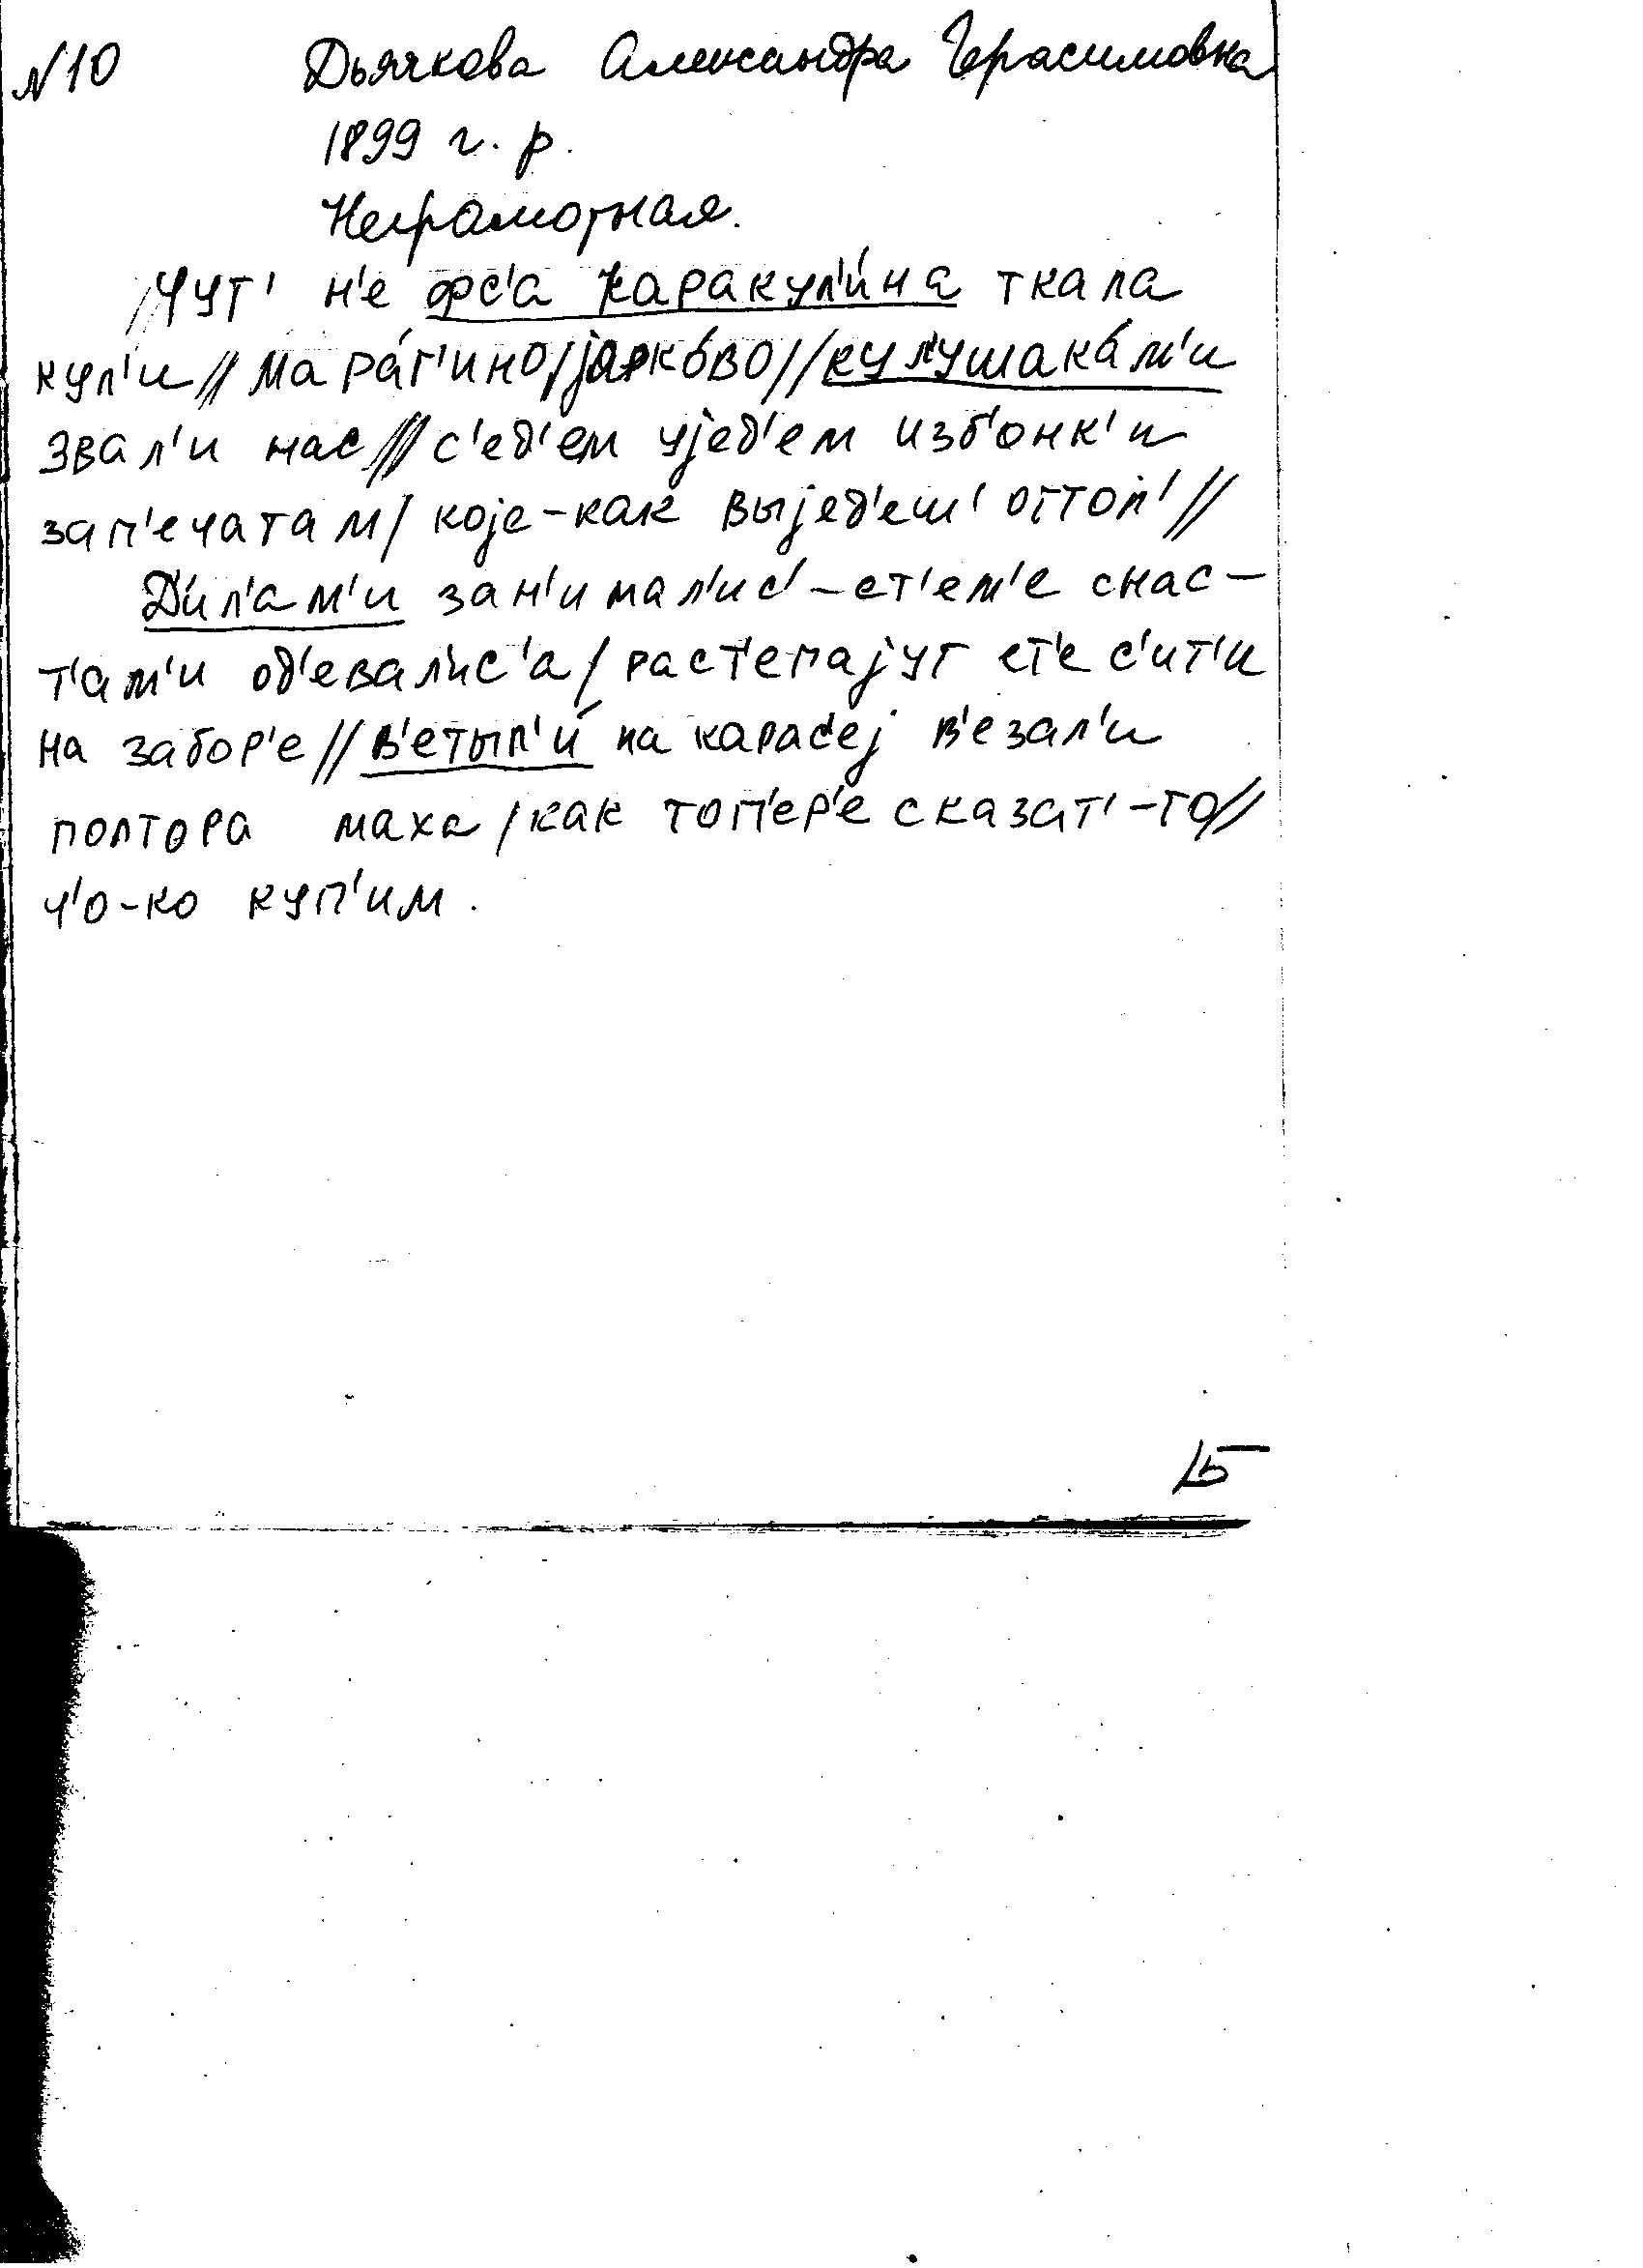 №10 Дьячкова Александра Герасимовна
1899 г. р.
Неграмотная.
/чут' н'е фс'а каракул'и́на ткала
кул'и // мара́т'ино / јарко́во // кул'ушака́м'и
звал'и нас /// с'ед'ем ујед'ем изб'онк'и
зап'ечатам / које-как выјед'еш' оттол' //
Д'ил'ам'и зан'имал'ис' – ет'ем'е снас–
т'ам'и од'евал'ис'а / раст'епајут ет'е с'ит'и
на забор'е // в'етыл'и́ на карас'еј в'езал'и
полтора маха / как топ'ер'е сказат'-то //
ч'о-ко куп'им.
15